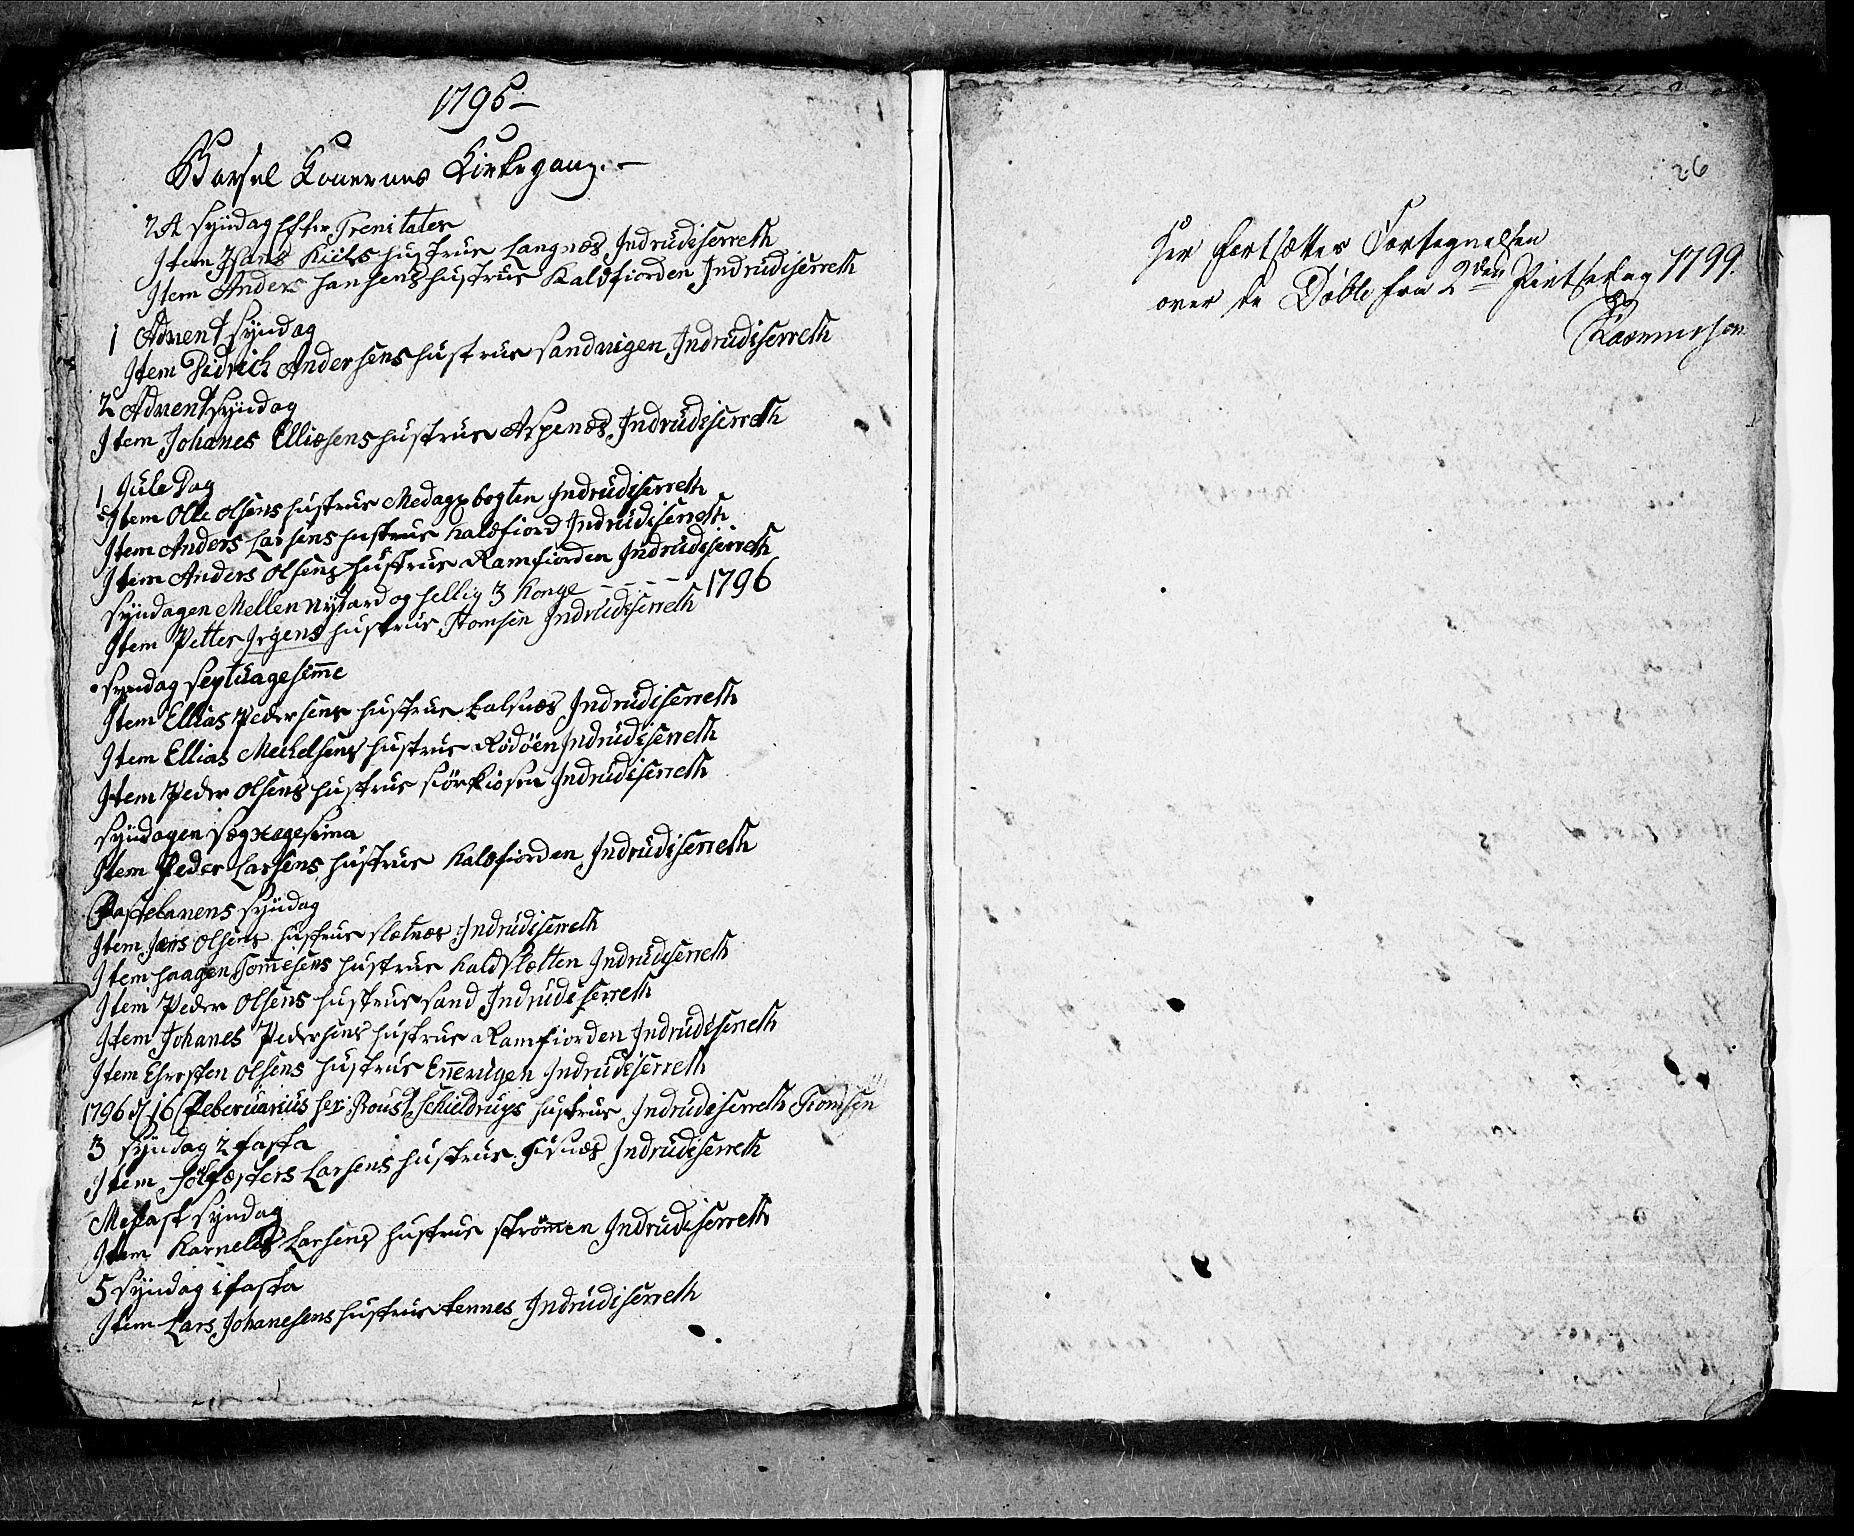 1795
Barsel Konernes Kirkegang.
24 Syndag Efter Trenitates
Item Hans Kiils Hustrue Langnæs Indrüdiserreth
Item Anders Hansens Hustrue Kaldfiorden Indrüdiserreth
1 Advent Syndag
Item Didrich Andersens Hustrue Sandvigen Indrüdiserreth
2 Advent Syndag
Item Johanes Elliæsens Hustrue Aspenæs Indrüdiserreth
1 Jule Dag
Item Olle Olsens Hustrue Medagsbogten Indrüdiserreth
Item Anders Larsens Hustrue Kaldfiord Indrüdiserreth
Item Anders Olsens Hustrue Ramfiorden Indrüdiserreth
Syndagen Mellen Nytard og Hellig 3 Konge - - - - 1796
Item Petter Irgens Hustrue Tromsen Indrüdiserreth
Syndag Septuagesime
Item Ellias Pedersens Hustrue Balsnæs Indrüdiserreth
Item Ellias Mechelsens Hustrue Rödöen Indrüdiserreth
Item Peder Olsens Hustrue Indrüdiserreth
Syndagen Segxagesima
Item Peder Larsens Hustrue Kaldfiorden Indrüdiserreth
Fastelavens Syndag
Item Jens Olsens Hustrue Sletnes Indrüdiserreth
Item Haagen Tommesens Hustrue Kaldsletten Indrüdiserreth
Item Peder Olsens Hustrue Sand Indrüdiserreth
Item Johanes Pedersens Hustrue Ramfiorden Indrüdiserreth
Item Chresten Olsens Hustrue Ennevigen Indrüdiserreth
1796 d 16 Feberuarius Her Proust Schieldrups Hustrue Indrüdiserreth Tromsen
3 Syndag i fasta
Item Larsens Hustrue Indrüdiserreth
Mefast Syndag
Item Karnelius Larsens Hustrue Strömmen Indrüdiserreth
5 Syndag i fasta
Item Lars Johanesens Hustrue Tennes Indrüdiserreth
26
Her fortsættes Fortegnelsen
over de Döbte fra 2den Pintsedag 1799.
Rasmussen